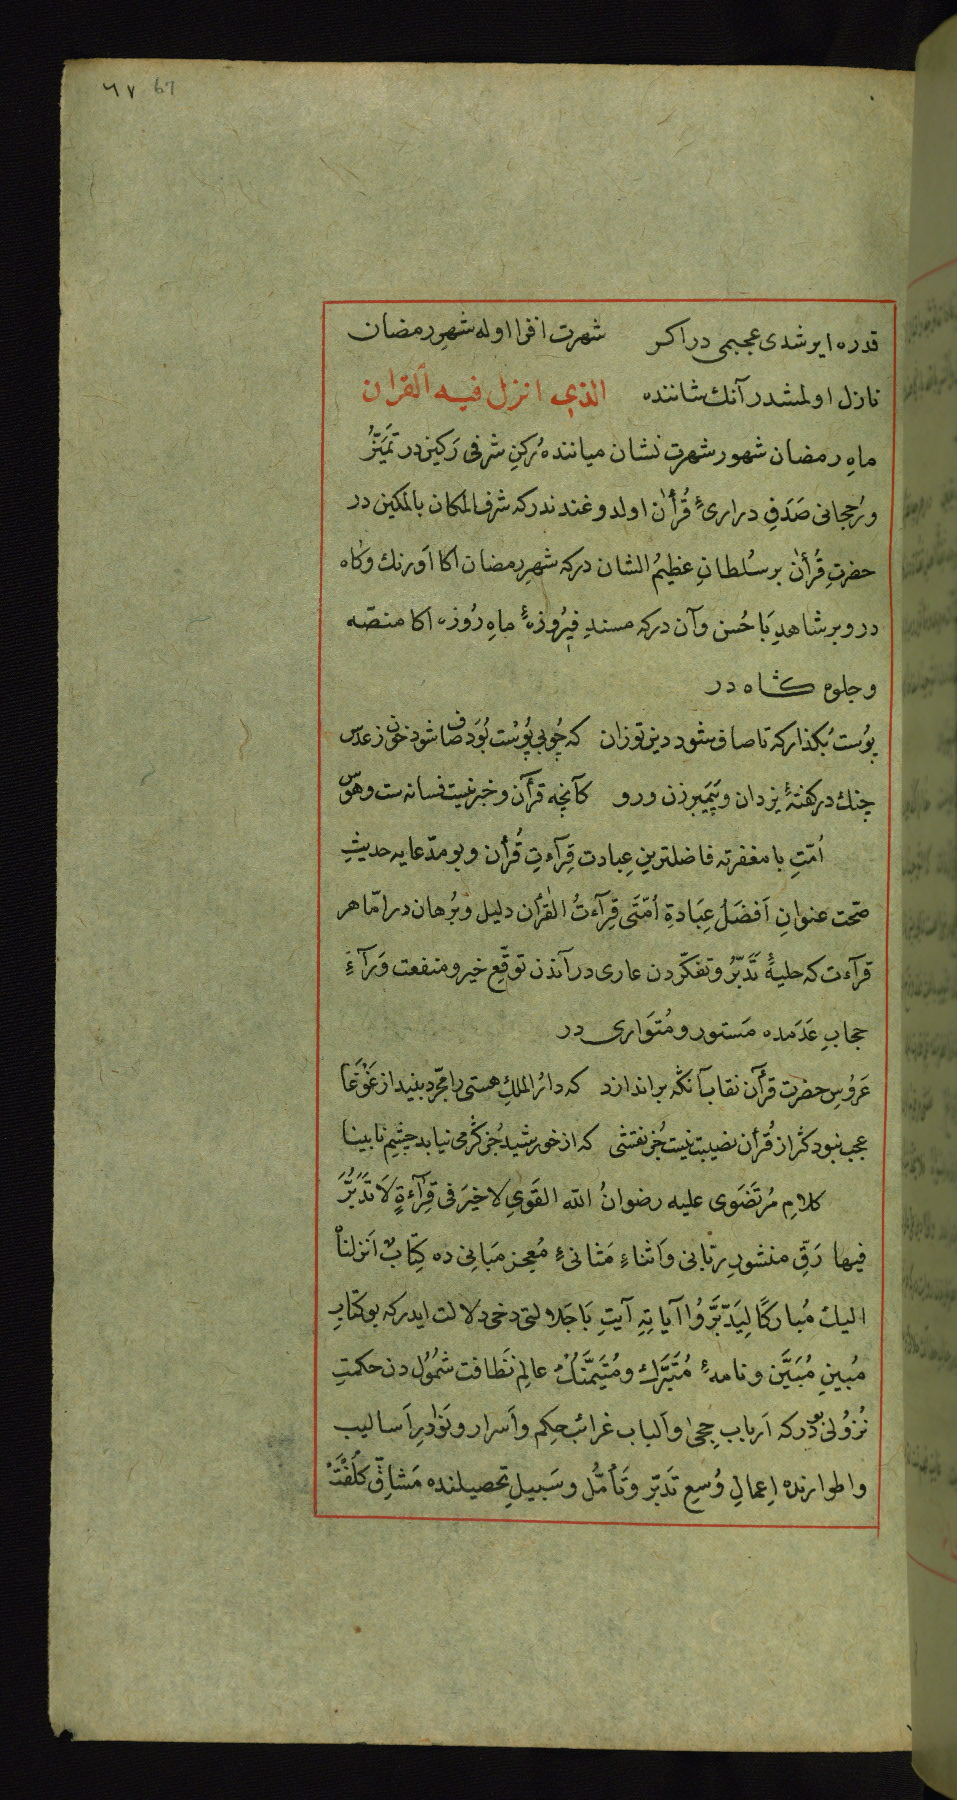 ٦٧ 67
قدره ایرشدی عجبمی در اکر شهرت افزا اوله شهرِ رمضان
نازل اولمشدر آنك شاننده الذي انزل فیه القران
ماهِ رمضان شهور شهرت نشان میاننده رُکنِ شرفی رَکین در تَمَیُّز
و رُجحانی صَدَفِ دراریٔ قُرأٰن اولدوغندندر که شرف المکان بالمکین در
حضرتِ قُرأٰن بر سُلطانِ عظیمُ الشان در که شهرِ رمضان اکا اَورنك وکاه
در و بر شاهدِ بَا حُسن و آن در که مسندِ فیرُوزهٔ ماهِ رُوزه اکا منصّه
و جلوه کاه در
پوُست بگذار که تا صاف شود دین تو زان که چُو بی پُوست بُوَد صاف شود خون ز عدس
چنك در کفتهٔ یزدان و پَیَمبر زن و رو کآنچه قرأن و خبر نیست فسانه ست و هوس
اُمّتِ با مغفرته فاضلترینِ عِبادت قِرآءتِ قُرأن و بو مدّعایه حدیثِ
صحّت عنوانِ اَفضَلُ عِبَادةِ اُمّتَی قِرآءَتُ القرأن دلیل و بُرهان در امّا هر
قرآءت که حلیهٔ تَدَبّرُ و تفکّردن عاری در آندن توقّعِ خیر و منفعت وَرآءِ
حجابِ عَدَمده مَستور و مُتَواری در
عَروُسِ حضرت قرآن نقاب آنکه براندازد که دارُ الملكِ هستی را مجرّد بیند از غَوْغَا
عجب نبود کر از قُرأن نصیبت نیست جُز نقشی که از خورشید جُز کرمی نیابد چشمِ نابینا
کلامِ مُرتَضَوی علیه رضوانُ الله القَوِی لا خیرَ فی قِرآءةٍ لَا تَدَبُّرَ
فیها رَقِّ منشورِ ربّانی و اَثناءِ مَثانیٔ مُعجز مَبانِی ده کِتَابٌ اَنزلناهُ
الیك مُبارکًا لِیَدَّبَّرُوا آیاتِهِ آیتِ بَاجَلالتی دخی دلالت ایدر که بو کتابِ
مُبینِ مُبَیَّن و نامهٔ مُتَبَرَّك و مُتَیَمَّنُكْ عالمِ نَظافت شُمُوُل دن حکمتِ
نُزوُلی بودر که اَربابِ حِجیٰ و اَلباب غرائبِ حِکَم و اَسرار و نَوادِرِ اَسالیب
و اطوارنده اِعمالِ وُسعِ تَدَبّر و تَأمُّل و سَبیلِ تحصیلنده مَشاقِّ کُلفَتَه